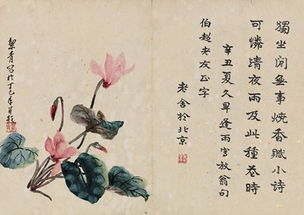 獨坐閑無事燒香賦小詩
可憐清夜雨及此種時
辛丑夏久旱逢雨寫放翁句
伯超老友正字
老舍於北京
絜青写於丁巳年